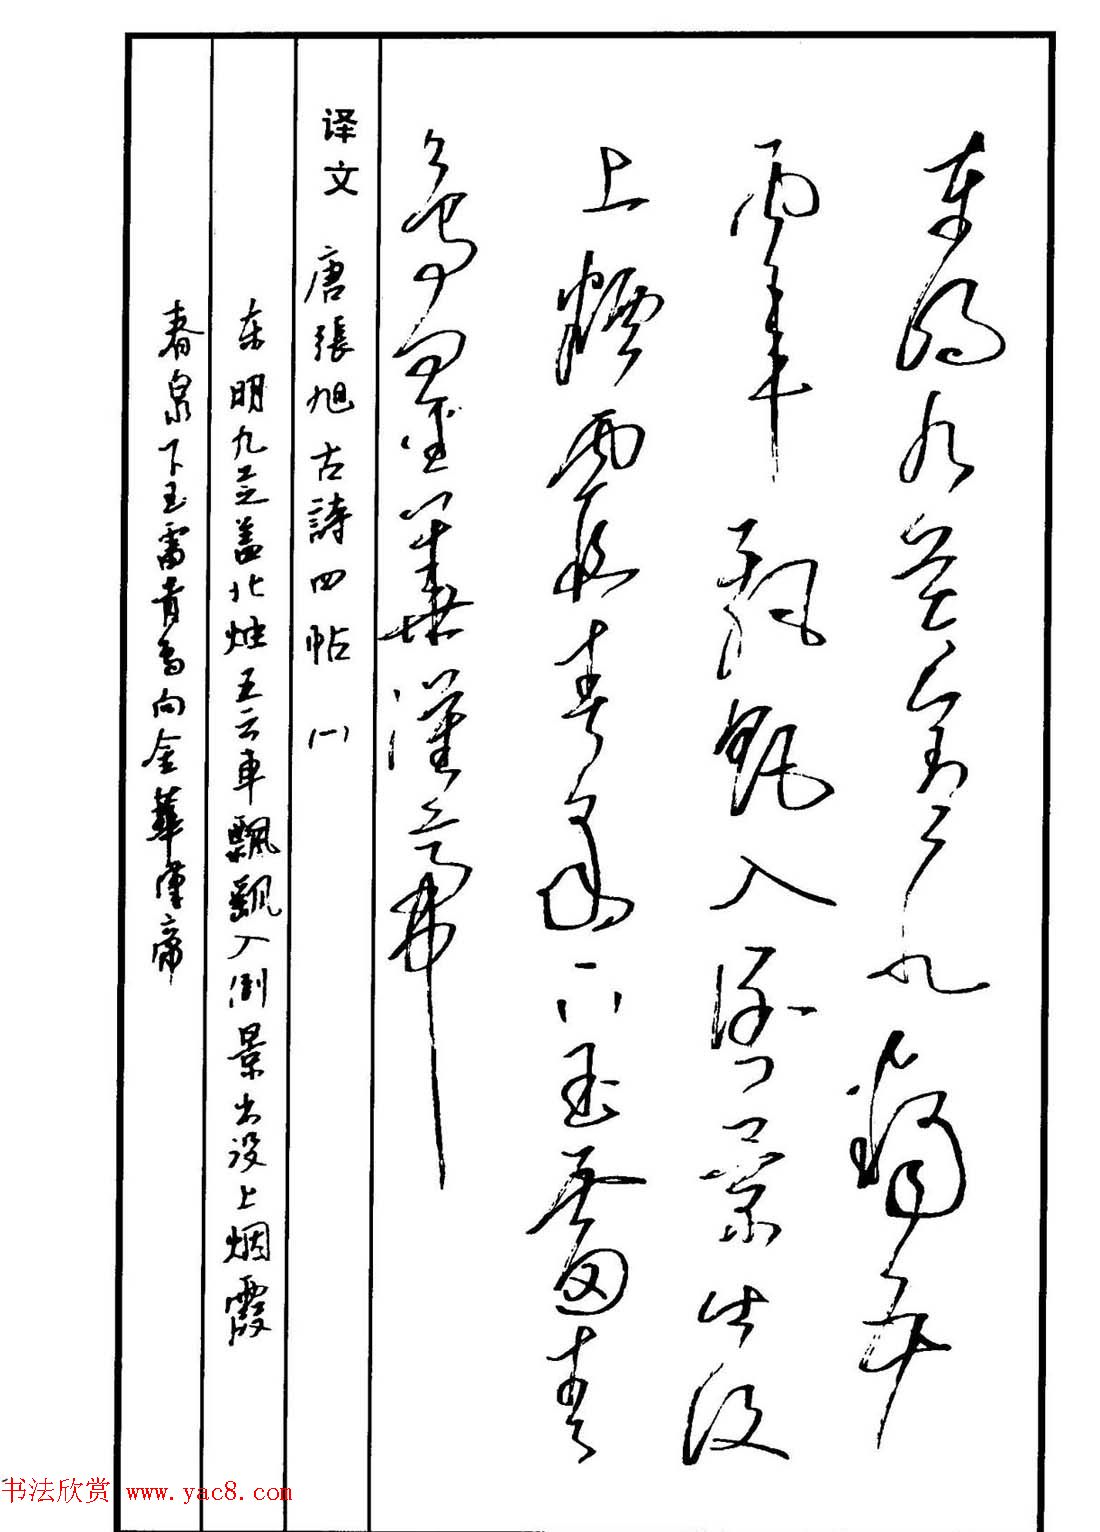 东明九芝盖北烛五
云車飘飖入倒景出没
上烟霞春泉下玉霤青
鸟向金華漢帝
译文 唐張旭古詩四帖 (一)
东明九芝盖北烛五云車飄飖入倒景出没上烟霞
春泉下玉霤青鸟向金華漢帝
书法欣赏 www.yac8.com